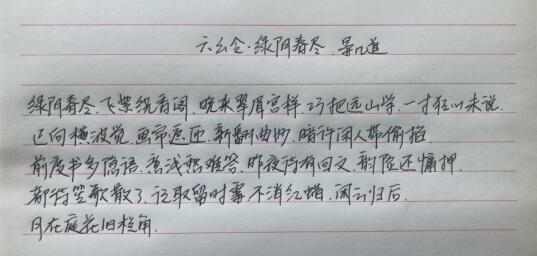 六幺令·绿阴春尽 晏几道
绿阴春尽,飞絮绕香阁,晚来翠眉宫样,巧把远山学,一寸狂心未说,
已向横波觉,画帘遮匝,新翻曲妙,暗许闲人带偷掐,
前度书多隐语,意浅愁难答,昨夜诗有回文,韵险还慵押,
都待笙歌散了,记取留时霎,不消红蜡,闲云归后,
月在庭花旧栏角.